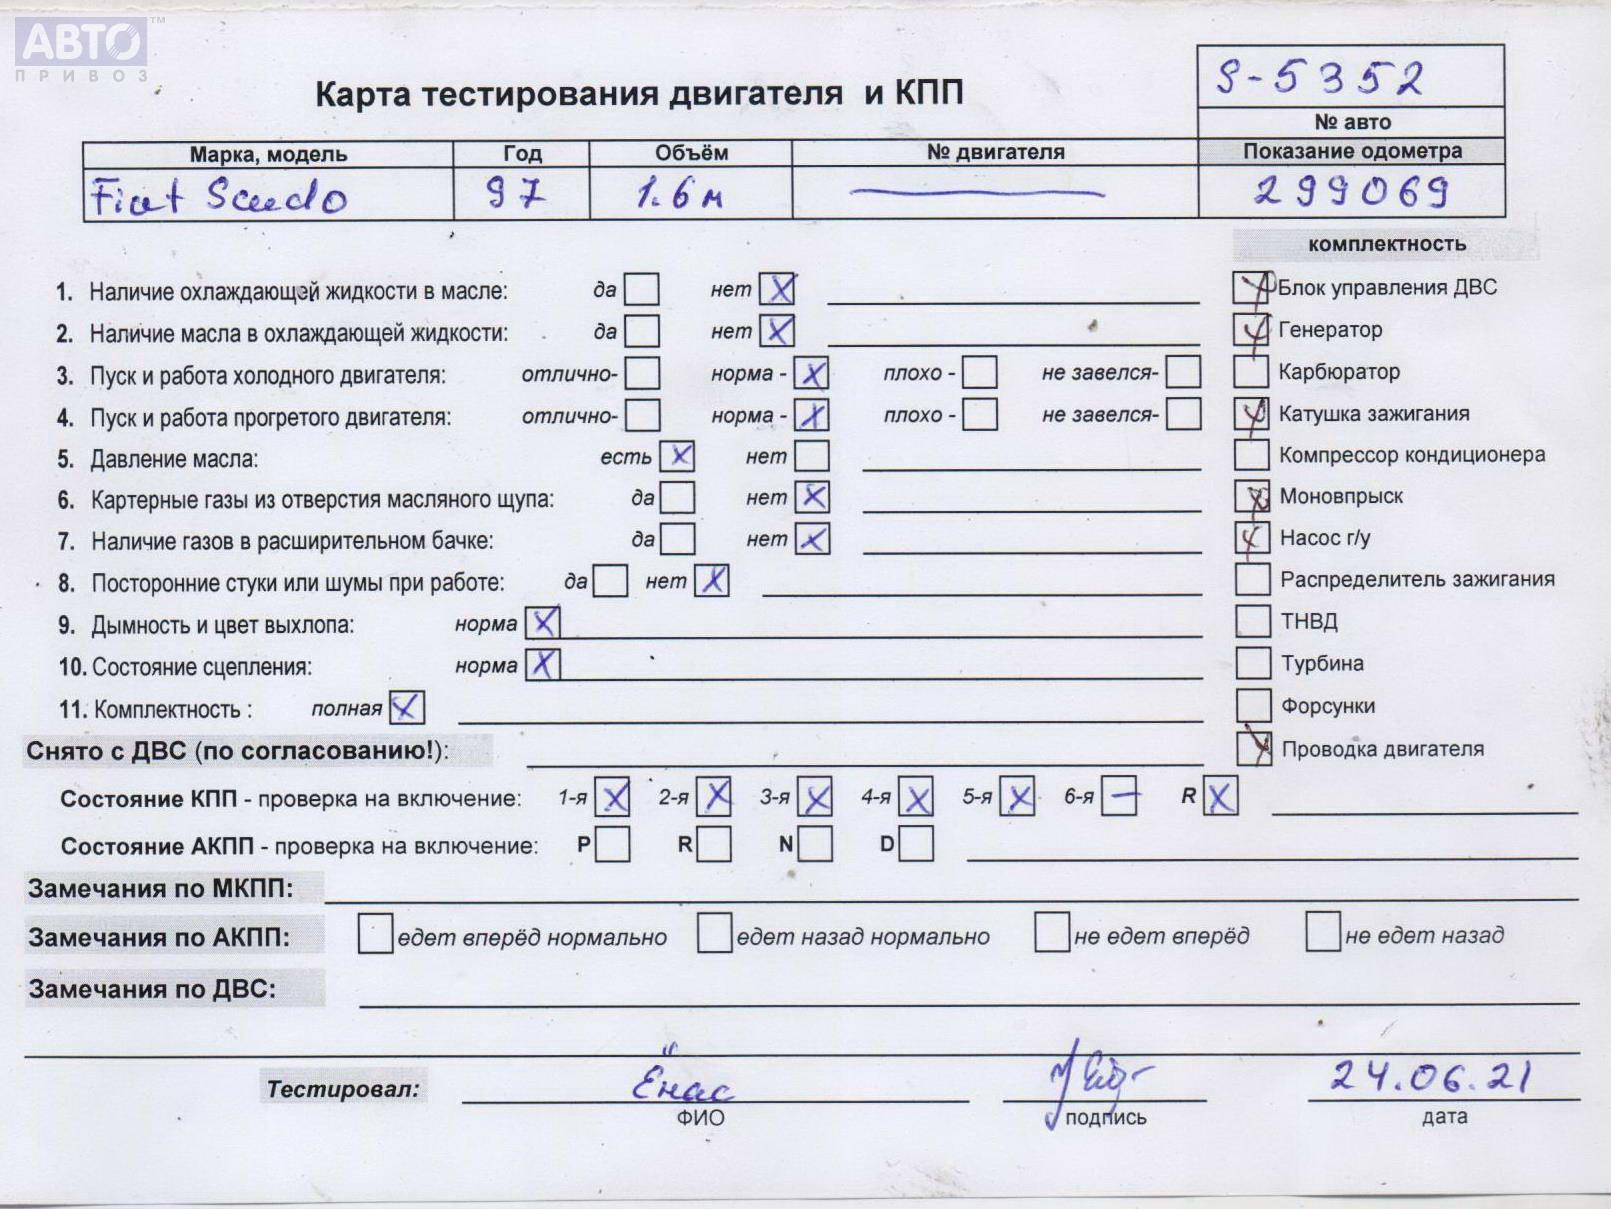 АВТО™
ПРИВОЗ
S-5352
Карта тестирования двигателя и КПП
№ авто
Марка, модель Год Объём № двигателя Показание одометра
Fiat Scudo 97 1.6 м — 299069
комплектность
1. Наличие охлаждающей жидкости в масле: да нет X Блок управления ДВС
2. Наличие масла в охлаждающей жидкости: да нет X Генератор
3. Пуск и работа холодного двигателя: отлично- норма - X плохо - не завелся- Карбюратор
4. Пуск и работа прогретого двигателя: отлично- норма - X плохо - не завелся- Катушка зажигания
5. Давление масла: есть X нет Компрессор кондиционера
6. Картерные газы из отверстия масляного щупа: да нет X Моновпрыск
7. Наличие газов в расширительном бачке: да нет X Насос г/у
8. Посторонние стуки или шумы при работе: да нет X Распределитель зажигания
9. Дымность и цвет выхлопа: норма X ТНВД
10. Состояние сцепления: норма X Турбина
11. Комплектность : полная X Форсунки
Снято с ДВС (по согласованию!): Проводка двигателя
Состояние КПП - проверка на включение: 1-я X 2-я X 3-я X 4-я X 5-я X 6-я — R X
Состояние АКПП - проверка на включение: P R N D
Замечания по МКПП:
Замечания по АКПП: едет вперёд нормально едет назад нормально не едет вперёд не едет назад
Замечания по ДВС:
Тестировал: Ёнас 24.06.21
ФИО подпись дата